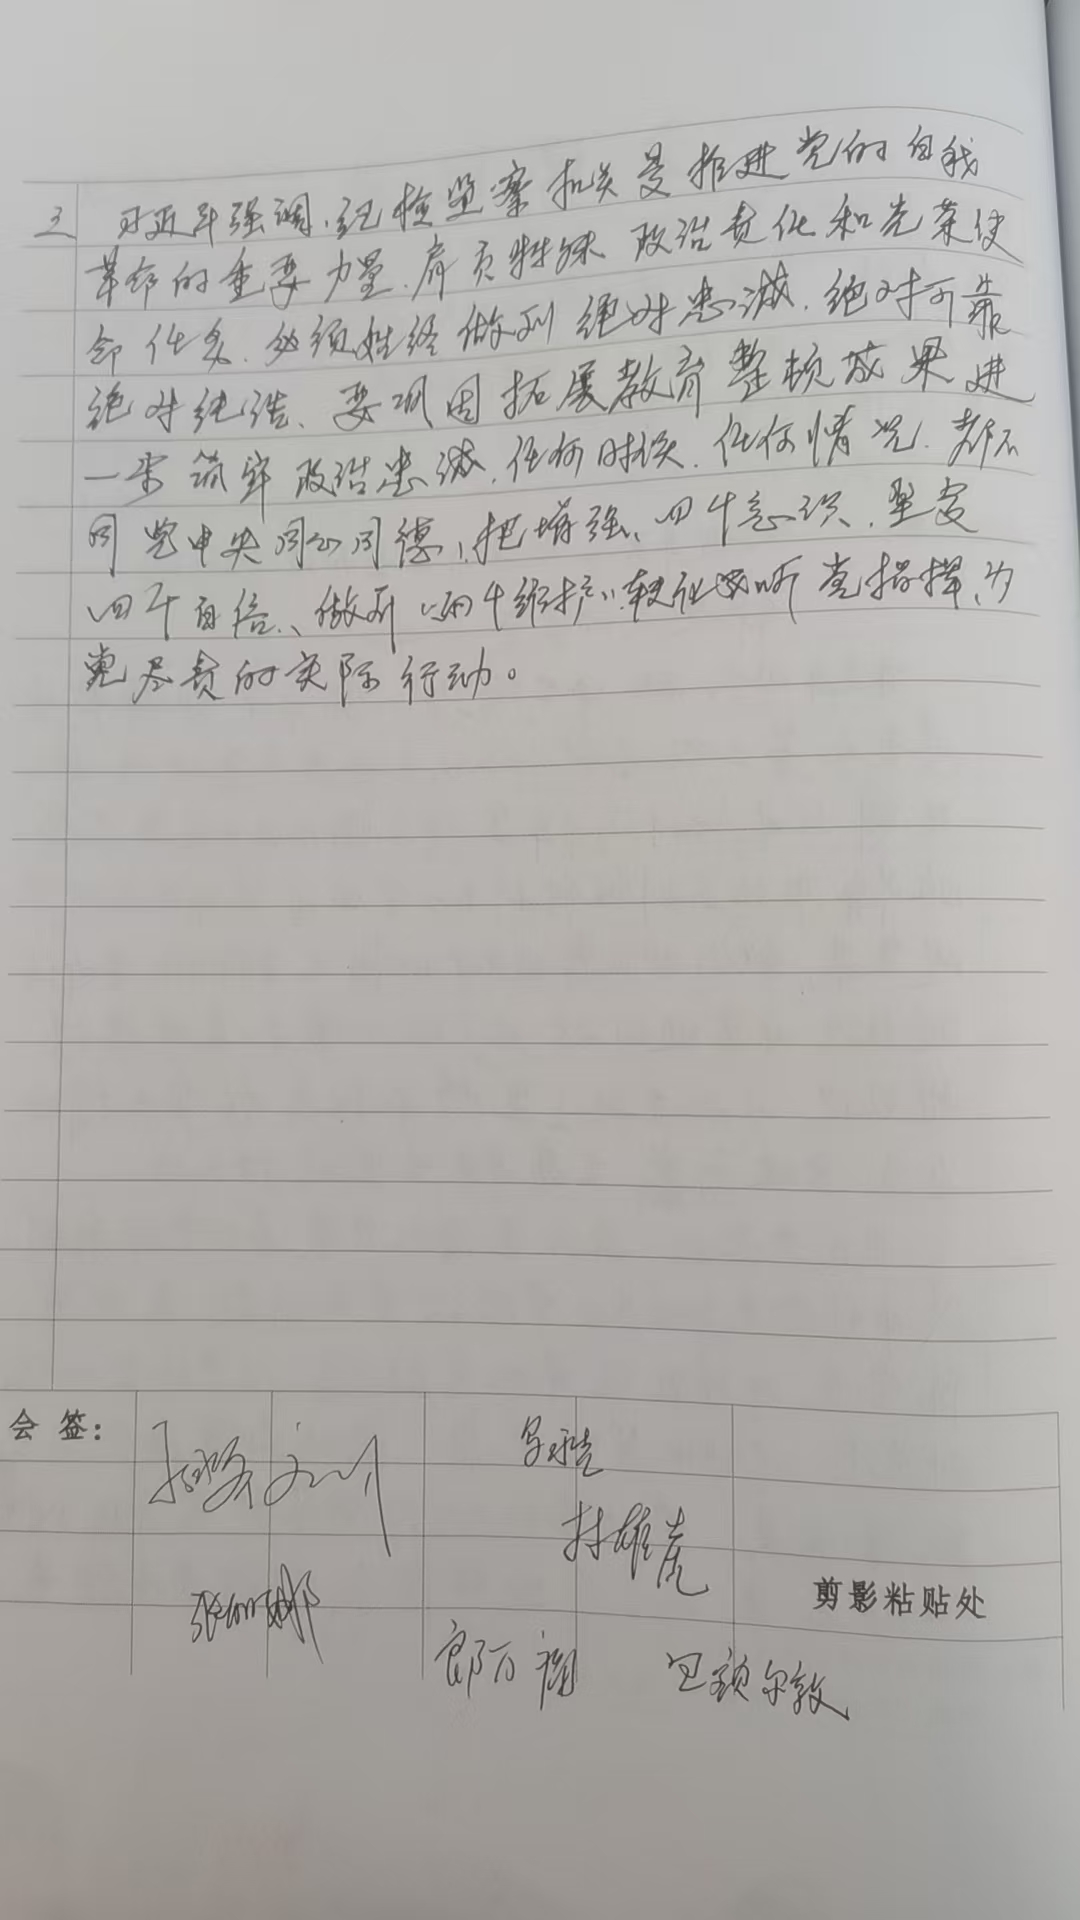 习近平强调、纪检监察机关是推进党的自我
革命的重要力量、肩负特殊政治责任和光荣使
命任务、必须始终做到绝对忠诚、绝对可靠
绝对纯洁、要巩固拓展教育整顿成果进
一步筑牢政治忠诚、任何时候、任何情况、都
同党中央同心同德、把增强、四个意识、坚定
四个自信、、做到“两个维护”、听党指挥、为
党尽责的实际行动。
会签:
林雄虎
剪影粘贴处
郎万 尔敦